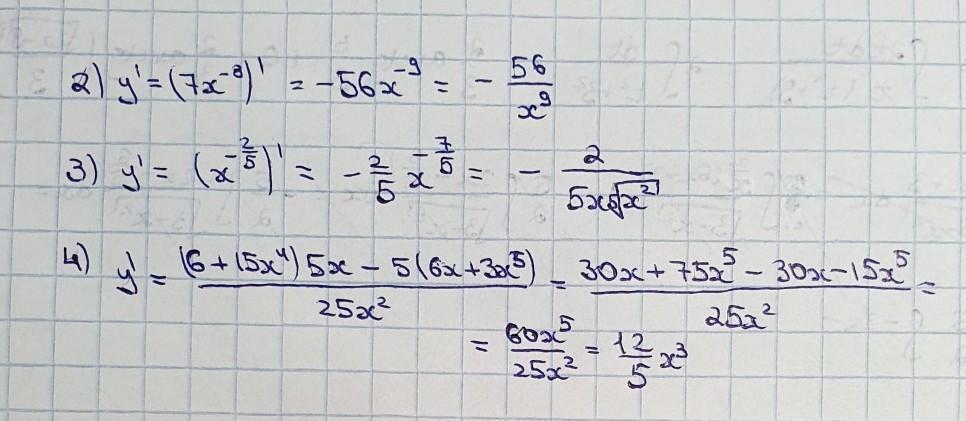 2) y' = (7x⁻⁸)' = -56x⁻⁹ = - 56/x⁹
3) y' = (x^(-2/5))' = -2/5 x^(-7/5) = - 2/(5x⁵√x²)
4) y' = ((6+15x⁴)5x - 5(6x+3x⁵))/25x² = (30x+75x⁵-30x-15x⁵)/25x² =
= 60x⁵/25x² = 12/5 x³